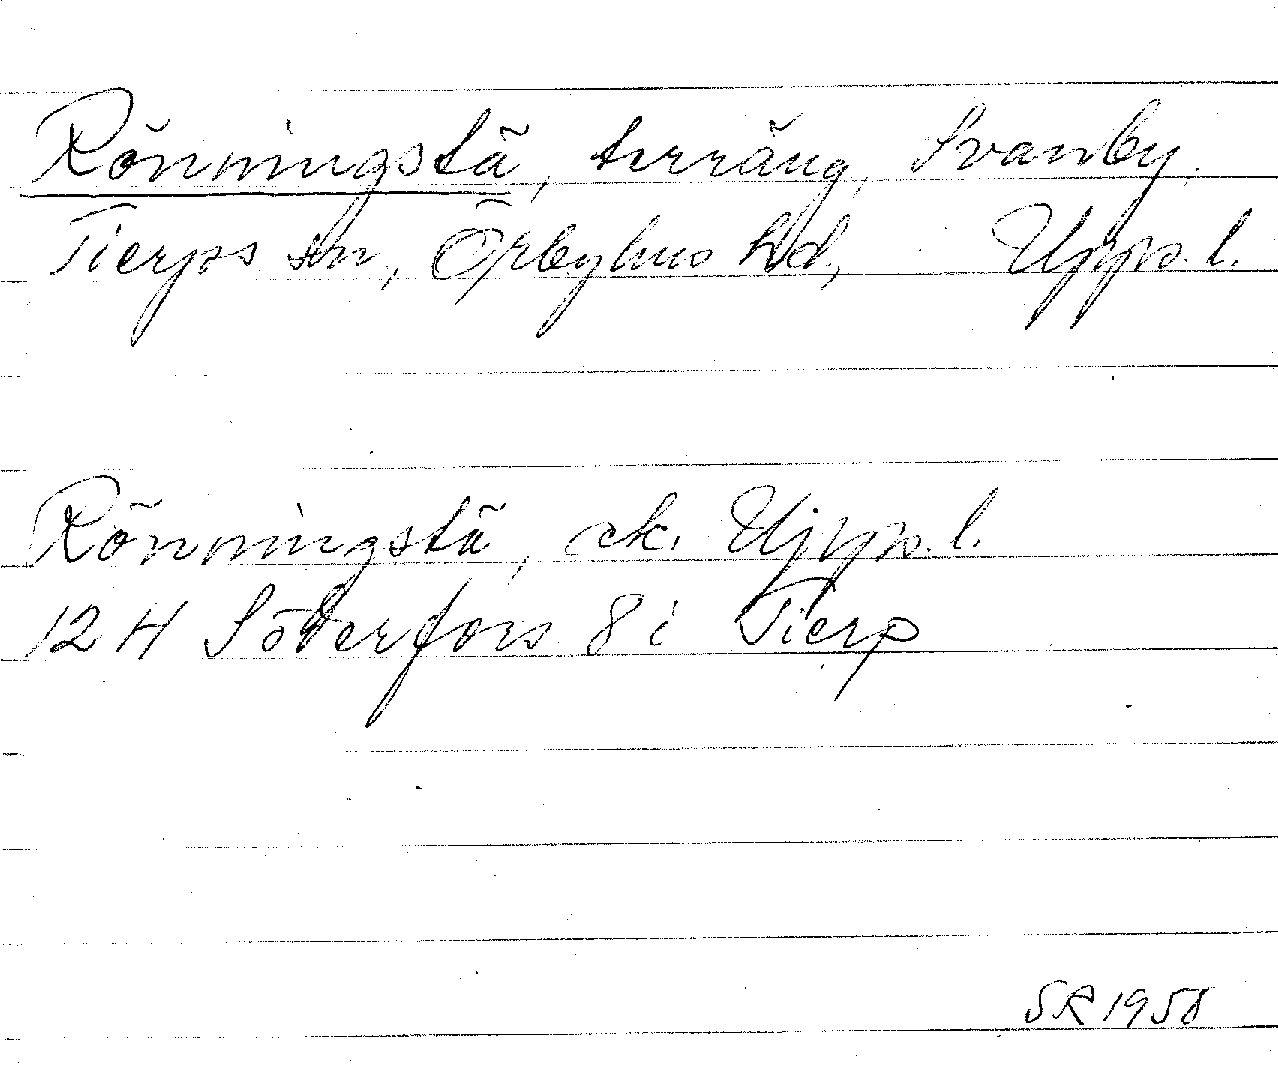 Rönningstä, terräng, Svanby,
Tierps sn, Örbyhus hd, Uppl.
Rönningstä, ek. Uppl.
12 H Söderfors 8 i Tierp
SR 1958